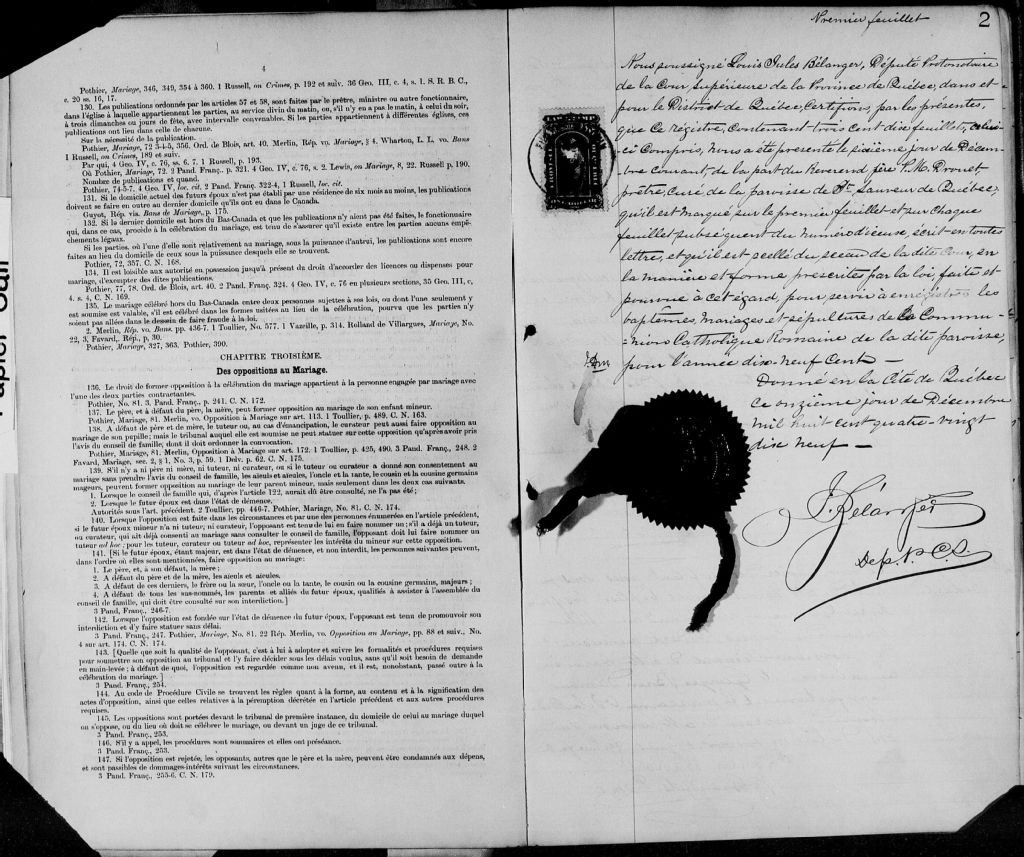 4
Pothier, Mariage, 346, 349, 354 à 360. 1 Russell, on Crimes, p. 192 et suiv. 36 Geo. III, c. 4, s. 1. S. R. B. C.,
c. 20 ss. 16, 17.
130. Les publications ordonnées par les articles 57 et 58, sont faites par le prêtre, ministre ou autre fonctionnaire,
dans l'église à laquelle appartiennent les parties, au service divin du matin, ou, s'il n'y en a pas le matin, à celui du soir,
à trois dimanches ou jours de fête, avec intervalle convenables. Si les parties appartiennent à différentes églises, ces
publications ont lieu dans celle de chacune.
Sur la nécessité de la publication.
Pothier, Mariage, 72 3-4-5, 356. Ord. de Blois, art. 40. Merlin, Rép. vo. Mariage, § 4. Wharton, L. L. vo. Bans
1 Russell, on Crimes, 189 et suiv.
Par qui, 4 Geo. IV, c. 76, ss. 6, 7. 1 Russell, p. 193.
Où Pothier, Mariage, 72. 2 Pand. Franç. p. 321. 4 Geo. IV, c. 76, s. 2. Lewin, on Mariage, 8, 22. Russell p. 190,
Nombre de publications et quand.
Pothier, 74-5-7. 4 Geo. IV, loc. cit. 2 Pand. Franç. 322-4, 1 Russell, loc. cit.
131. Si le domicile actuel des futurs époux n'est pas établi par une résidence de six mois au moins, les publications
doivent se faire en outre au dernier domicile qu'ils ont eu dans le Canada.
Guyot, Rép. vis. Bans de Mariage, p. 175.
132. Si le dernier domicile est hors du Bas-Canada et que les publications n'y aient pas été faites, le fonctionnaire
qui, dans ce cas, procède à la célébration du mariage, est tenu de s'assurer qu'il existe entre les parties aucuns empê-
chements légaux.
Si les parties, où l'une d'elle sont relativement au mariage, sous la puissance d'autrui, les publications sont encore
faites au lieu du domicile de ceux sous la puissance desquels elle se trouvent.
Pothier, 72, 357. C. N. 168.
134. Il est loisible aux autorité en possession jusqu'à présent du droit d'accorder des licences ou dispenses pour
mariage, d'exempter des dites publications.
Pothier, 77, 78. Ord. de Blois, art. 40. 2 Pand. Franç. 324. 4 Geo. IV, c. 76 en plusieurs sections, 35 Geo. III, c,
4. s. 4, C. N. 169.
135. Le mariage célébré hors du Bas-Canada entre deux personnes sujettes à ses lois, ou dont l'une seulement y
est soumise est valable, s'il est célébré dans les formes usitées au lieu de la célébration, pourvu que les parties n'y
soient pas allées dans le dessein de faire fraude à la loi.
2. Merlin, Rép. vo. Bans. pp. 436-7. 1 Toullier, No. 577. 1 Vazeille, p. 314. Rolland de Villargues, Mariage, No.
22, 3. Favard, Rép., p. 30.
Pothier, Mariage, 327, 363. Pothier, 390.
CHAPITRE TROISIÈME.
Des oppositions au Mariage.
136. Le droit de former opposition à la célébration du mariage appartient à la personne engagée par mariage avec
l'une des deux parties contractantes.
Pothier, No. 81. 3. Pand. Franç., p. 241. C. N. 172.
137. Le père, et à défaut du père, la mère, peut former opposition au mariage de son enfant mineur.
Pothier, Mariage, 81. Merlin, vo. Opposition à Mariage sur art. 113. 1 Toullier, p. 489. C. N. 163.
138. A défaut de père et de mère, le tuteur ou, au cas d'émancipation, le curateur peut aussi faire opposition au
mariage de son pupille; mais le tribunal auquel elle est soumise ne peut statuer sur cette opposition qu'après avoir pris
l'avis du conseil de famille, dont il doit ordonner la convocation.
Pothier, Mariage, 81. Merlin, Opposition à Mariage sur art. 172. 1 Toullier, p. 425, 490. 3 Pand. Franç., 248. 2
Favard, Mariage, sec. 2, § 1, No. 3, p. 59. 1 Delv. p. 62. C. N. 175.
139. S'il n'y a ni père ni mère, ni tuteur, ni curateur, ou si le tuteur ou curateur a donné son consentement au
mariage sans prendre l'avis du conseil de famille, les aïeuls et aïeules, l'oncle et la tante, le cousin et la cousine germains
majeurs, peuvent former opposition au mariage de leur parent mineur, mais seulement dans les deux cas suivants.
1. Lorsque le conseil de famille qui, d'après l'article 122, aurait dû être consulté, ne l'a pas été;
2. Lorsque le futur époux est dans l'état de démence.
Autorités sous l'art. précédent. 2 Toullier, pp. 446-7. Pothier, Mariage, No. 81. C. N. 174.
140. Lorsque l'opposition est faite dans les circonstances et par une des personnes énumérées en l'article précédent,
si le futur époux mineur n'a ni tuteur, ni curateur, l'opposant est tenu de lui en faire nommer un; s'il a déjà un tuteur,
ou curateur, qui ait déjà consenti au mariage sans consulter le conseil de famille, l'opposant doit lui faire nommer un
tuteur ad hoc; pour les tuteur, curateur ou tuteur ad hoc, représenter les intérêts du mineur sur cette opposition.
141. [Si le futur époux, étant majeur, est dans l'état de démence, et non interdit, les personnes suivantes peuvent,
dans l'ordre où elles sont mentionnées, faire opposition au mariage:
1. Le père, et, à son défaut, la mère;
2. A défaut du père et de la mère, les aïeuls et aïeules.
3. A défaut de ces derniers, le frère ou la sœur, l'oncle ou la tante, le cousin ou la cousine germains, majeurs;
4. A défaut de tous les sus-nommés, les parents et alliés du futur époux, qualifiés à assister à l'assemblée du
conseil de famille, qui doit être consulté sur son interdiction.]
3 Pand. Franç., 246-7.
142. Lorsque l'opposition est fondée sur l'état de démence du futur époux, l'opposant est tenu de promouvoir son
interdiction et d'y faire statuer sans délai.
3 Pand. Franç., 247. Pothier, Mariage, No. 81. 22 Rép. Merlin, vo. Opposition au Mariage, pp. 88 et suiv., No.
4 sur art. 174. C. N. 174.
143. [Quelle que soit la qualité de l'opposant, c'est à lui à adopter et suivre les formalités et procédures requises
pour soumettre son opposition au tribunal et l'y faire décider sous les délais voulus, sans qu'il soit besoin de demande
en main-levée; à défaut de quoi, l'opposition est regardée comme non avenu, et il est, nonobstant, passé outre à la
célébration du mariage.]
3 Pand. Franç., 254.
144. Au code de Procédure Civile se trouvent les règles quant à la forme, au contenu et à la signification des
actes d'opposition, ainsi que celles relatives à la péremption décrétée en l'article précédent et aux autres procédures
requises.
145. Les oppositions sont portées devant le tribunal de première instance, du domicile de celui au mariage duquel
on s'oppose, ou du lieu où doit se célébrer le mariage, ou devant un juge de ce tribunal.
3 Pand. Franç., 253.
146. S'il y a appel, les procédures sont sommaires et elles ont préséance.
3 Pand. Franç., 253.
147. Si l'opposition est rejetée, les opposants, autres que le père et la mère, peuvent être condamnés aux dépens,
et sont passibles de dommages-intérêts suivant les circonstances.
3 Pand. Franç., 255-6. C. N. 179.
Premier feuillet
2
Nous soussigné Louis Jules Bélanger, Député Protonotaire
de la Cour Supérieure de la Province de Québec, dans et
pour le District de Québec, Certifions, par les présentes,
que ce régistre, contenant trois cent dix feuillets, celui-
ci Compris, nous a été présenté le sixième jour de Décem-
bre courant, de la part du Reverend père P. M. Drouet,
prêtre, Curé de la paroisse de St. Sauveur de Québec,
qu'il est marqué sur le premier feuillet et sur Chaque
feuillet subséquent du numéro d'iceux, écrit en toutes
lettre, et qu'il est scellé du sceau de la dite Cour, en
la manière et forme prescrites par la loi, faite et
pourvue à cet égard, pour servir à enrégistrer les
baptêmes, mariages et sépultures de la Commu-
nion Catholique Romaine de la dite paroisse,
pour l'année dix-neuf cent —
Donné en la Cité de Québec
ce onzième jour de Décembre
mil huit cent quatre-vingt
dix neuf —
J. Bélanger
Dep. P. C. S.